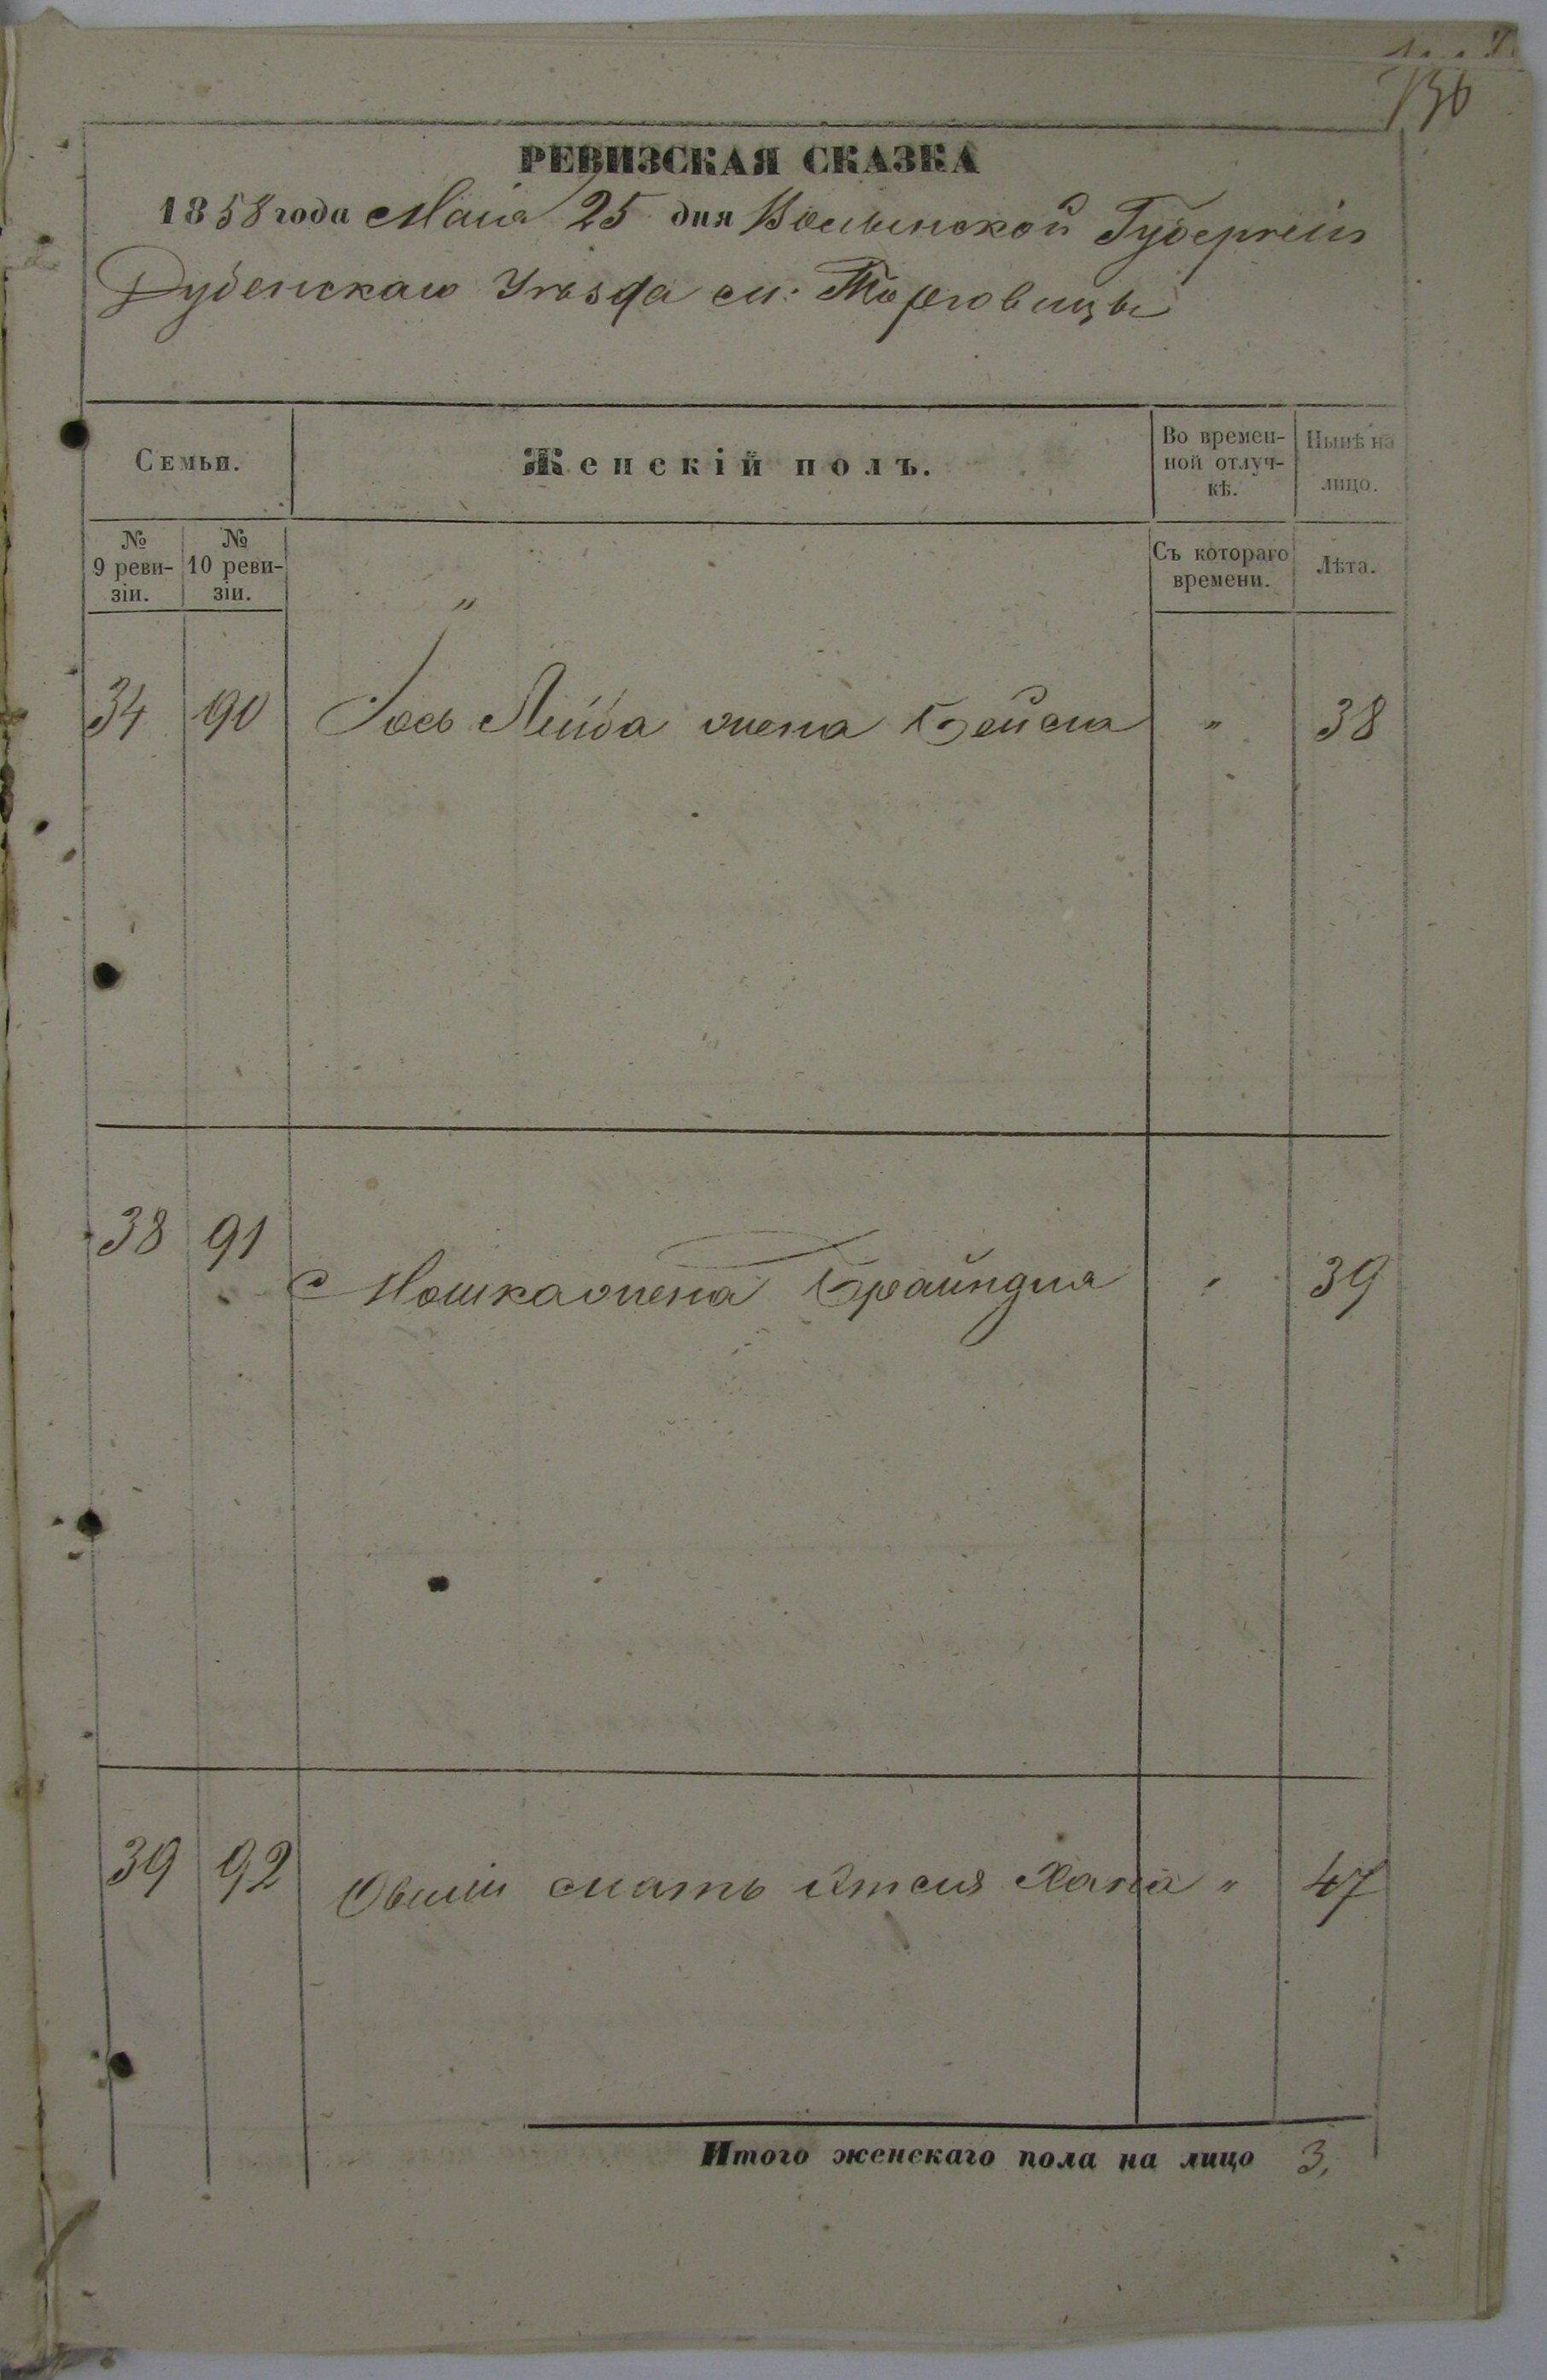 136
РЕВИЗСКАЯ СКАЗКА
1858 года Маія 25 дня Волынской Губерніи
Дубенскаго Уѣзда м: Торговицы
Семьи.
Женскій полъ.
Во времен-
ной отлуч-
кѣ.
Нынѣ на
лицо.
№
9 реви-
зіи.
№
10 реви-
зіи.
Съ котораго
времени.
Лѣта.
"
34 90 Іось Лейба жена Бейла " 38
38 91 Мошка жена Брайндля " 39
39 92 мать Хана " 47
Итого женскаго пола на лицо 3,